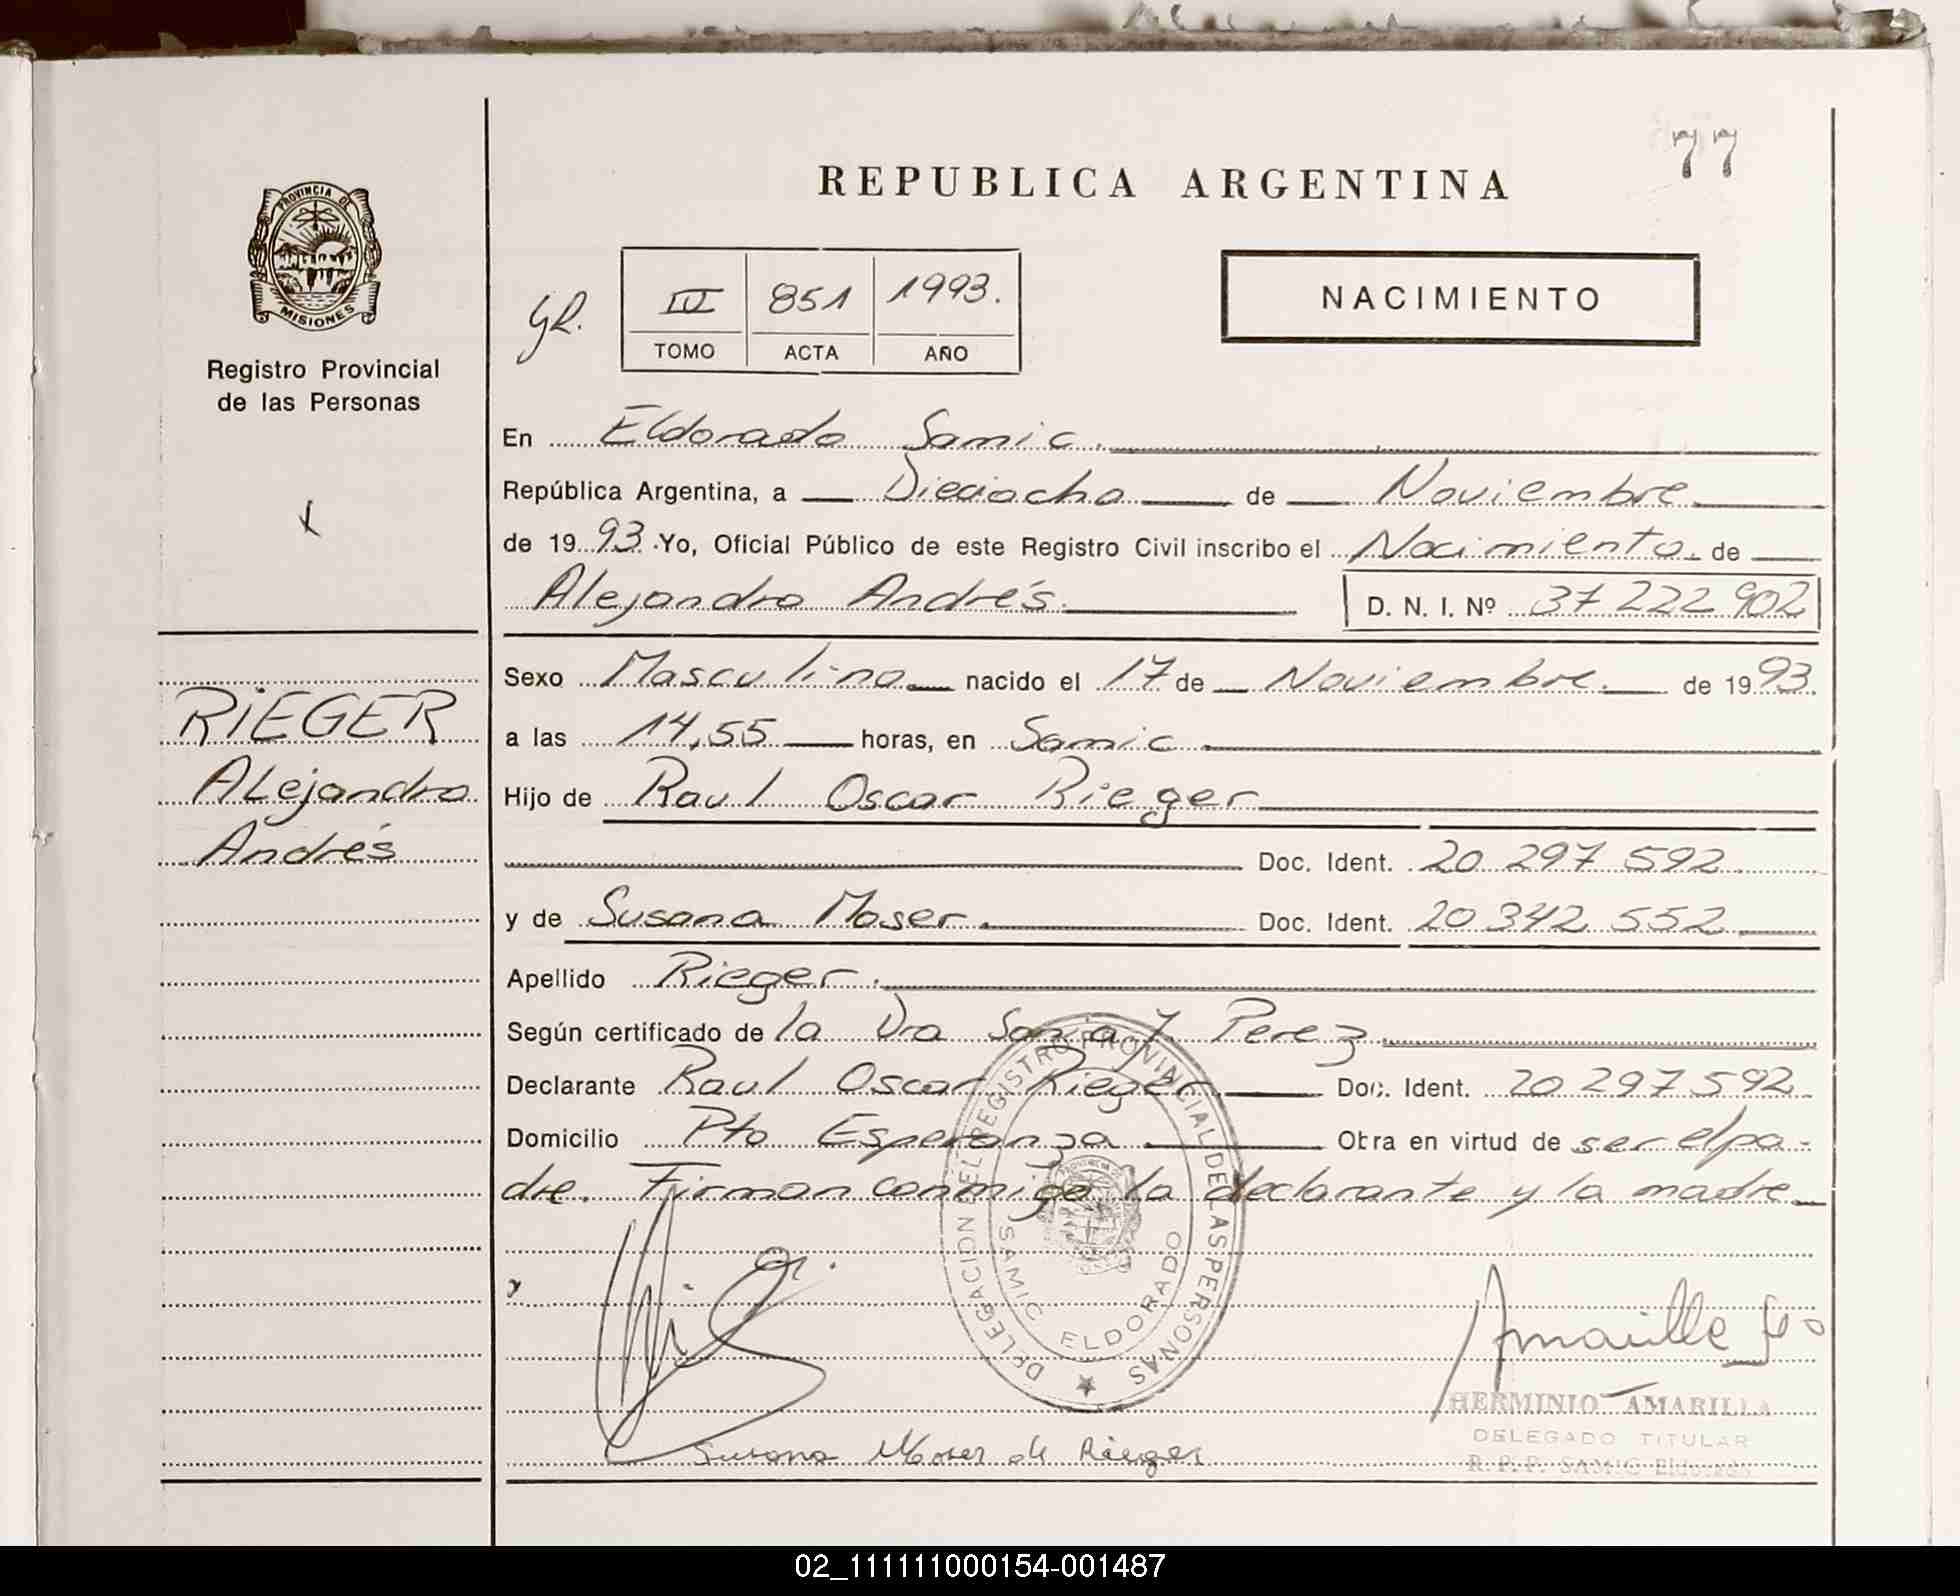 77
REPUBLICA ARGENTINA
PROVINCIA DE
MISIONES
Registro Provincial
de las Personas
IV 851 1993.
TOMO ACTA AÑO
NACIMIENTO
En Eldorado Samic.
República Argentina, a Dieciocho de Noviembre
de 1993. Yo, Oficial Público de este Registro Civil inscribo el Nacimiento de
Alejandro Andrés. D. N. I. Nº 37 222 902
Sexo Masculino nacido el 17 de Noviembre. de 1993.
a las 14,55 horas, en Samic
Hijo de Raul Oscar Rieger
Doc. Ident. 20 297 592
y de Susana Moser. Doc. Ident. 20 342 552
Apellido Rieger.
Según certificado de la Dra Sonia J. Perez
Declarante Raul Oscar Rieger Doc. Ident. 20 297 592
Domicilio Pto Esperanza Obra en virtud de ser el pa-
dre. Firman conmigo la declarante y la madre
RIEGER
ALejandro
Andrés
DELEGACION EL REGISTRO PROVINCIAL DE LAS PERSONAS
PROVINCIA DE
SAMIC ELDORADO
Susana Moser de Rieger
Amarilla
HERMINIO AMARILLA
DELEGADO TITULAR
R. P. P. SAMIC Eldorado
02_111111000154-001487